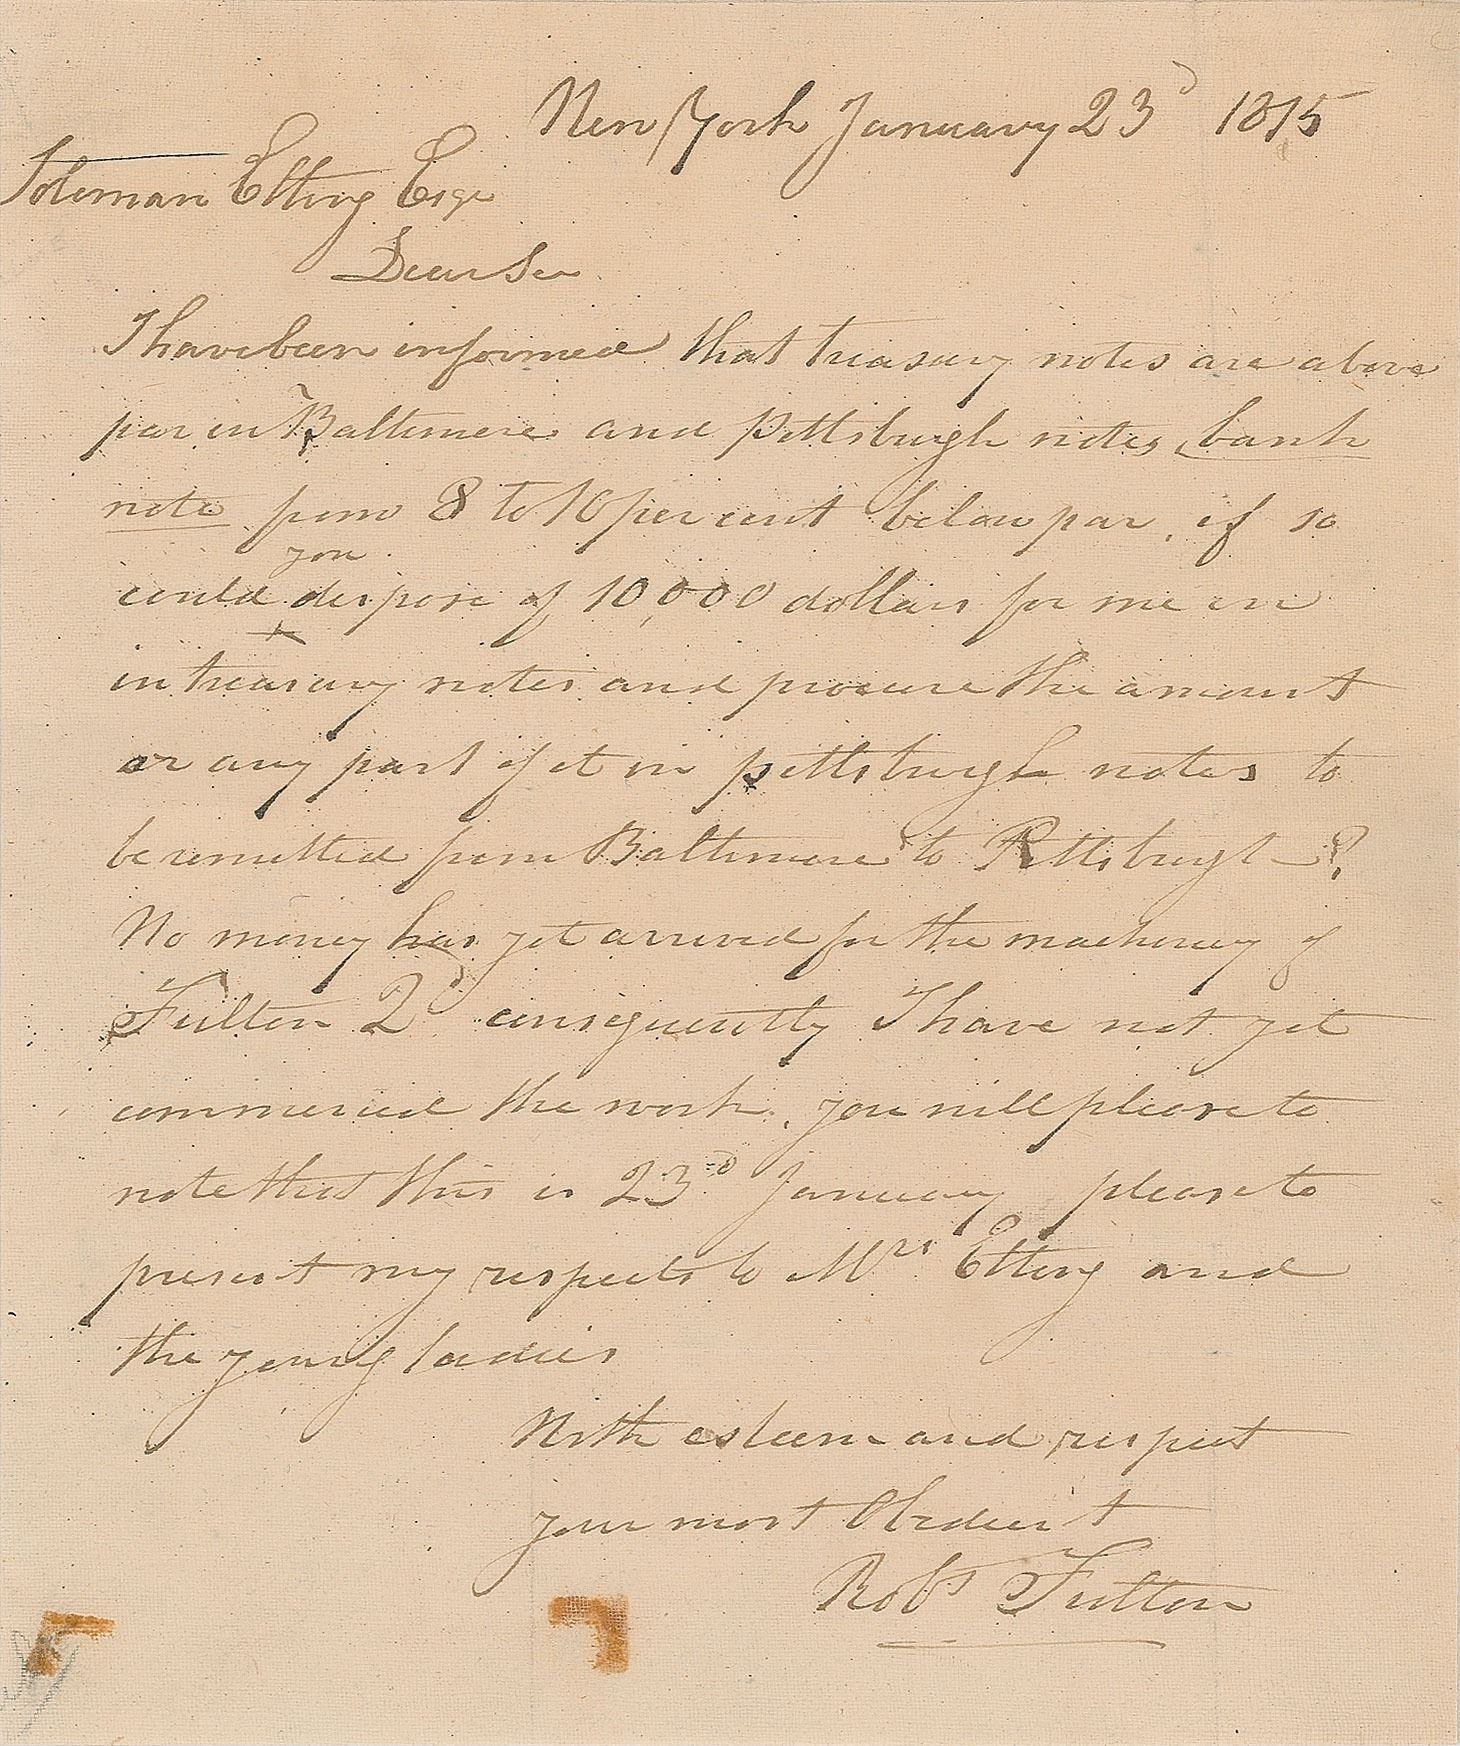 New York January 23d 1815
Soloman Etting Esqr
Dear Sir
I have been informed that treasury notes are above
par in Baltimore and Pittsburgh notes, bank
note from 8 to 10 per cent below par, if so
you
could dispose of 10,000 dollars for me in
in treasury notes and procure the amount
or any part of it in pittsburgh notes to
be remitted from Baltimore to Pittsburgh—?
No money has yet arrived for the machinery of
Fulton 2d consequently I have not yet
commenced the work. you will please to
note that this is 23d January please to
present my respects to Mrs Etting and
the young ladies
With esteem and respect
your most Obedient
Robt Fulton